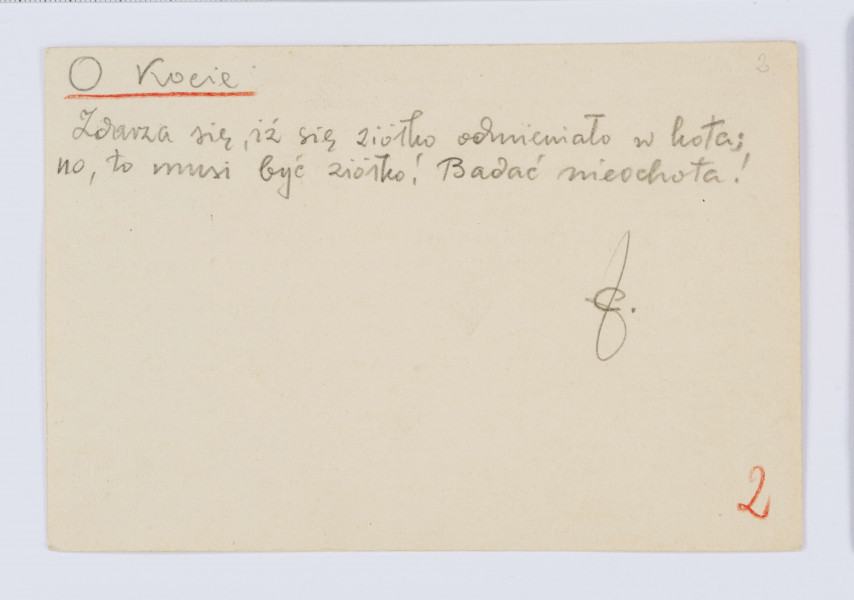 O Kocie
2
Zdarza się, iż się ziółko odmieniało w kota;
no, to musi być ziółko! Badać nieochota!
2